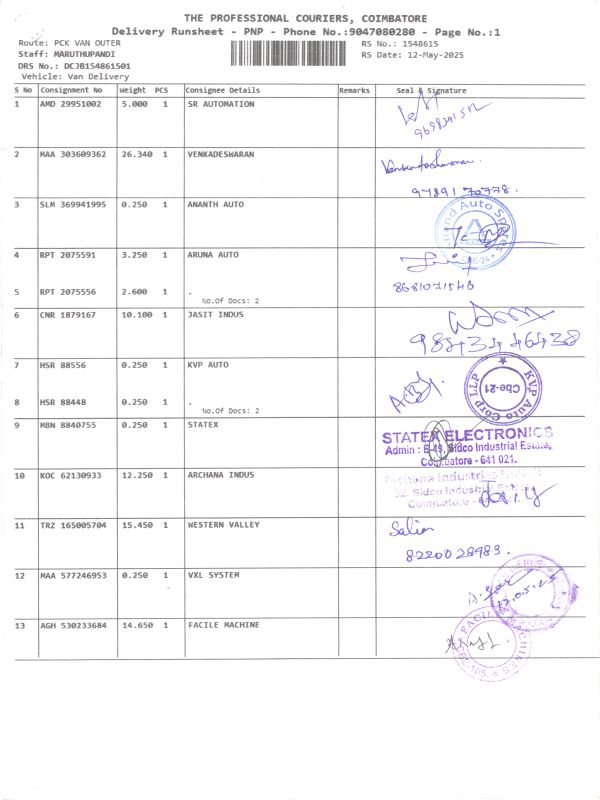 THE PROFESSIONAL COURIERS, COIMBATORE
Delivery Runsheet - PNP - Phone No.:9047080280 - Page No.:1
Route: PCK VAN OUTER
RS No.: 1548615
Staff: MARUTHUPANDI
RS Date: 12-May-2025
DRS No.: DCJB154861501
Vehicle: Van Delivery
S No Consignment No Weight PCS Consignee Details Remarks Seal & Signature
1 AMD 29951002 5.000 1 SR AUTOMATION
2 MAA 303609362 26.340 1 VENKADESWARAN
Venkadeshwaran.
9789170778.
3 SLM 369941995 0.250 1 ANANTH AUTO
Anand Auto Spares
CBE-24
4 RPT 2075591 3.250 1 ARUNA AUTO
5 RPT 2075556 2.600 1 .
No.Of Docs: 2
6 CNR 1879167 10.100 1 JASIT INDUS
98434 46438
7 HSR 88556 0.250 1 KVP AUTO
KVP Auto Corp LLP
Cbe-21
8 HSR 88448 0.250 1 .
No.Of Docs: 2
9 MBN 8840755 0.250 1 STATEX
STATEX ELECTRONICS
Admin : E-49, Sidco Industrial Estate,
Coimbatore - 641 021.
10 KOC 62130933 12.250 1 ARCHANA INDUS
Archana Industries
32, Sidco Industrial
Coimbatore -
11 TRZ 165005704 15.450 1 WESTERN VALLEY
8220028983.
12 MAA 577246953 0.250 1 VXL SYSTEM
12.05.25
13 AGH 530233684 14.650 1 FACILE MACHINE
FACILE MACHINES